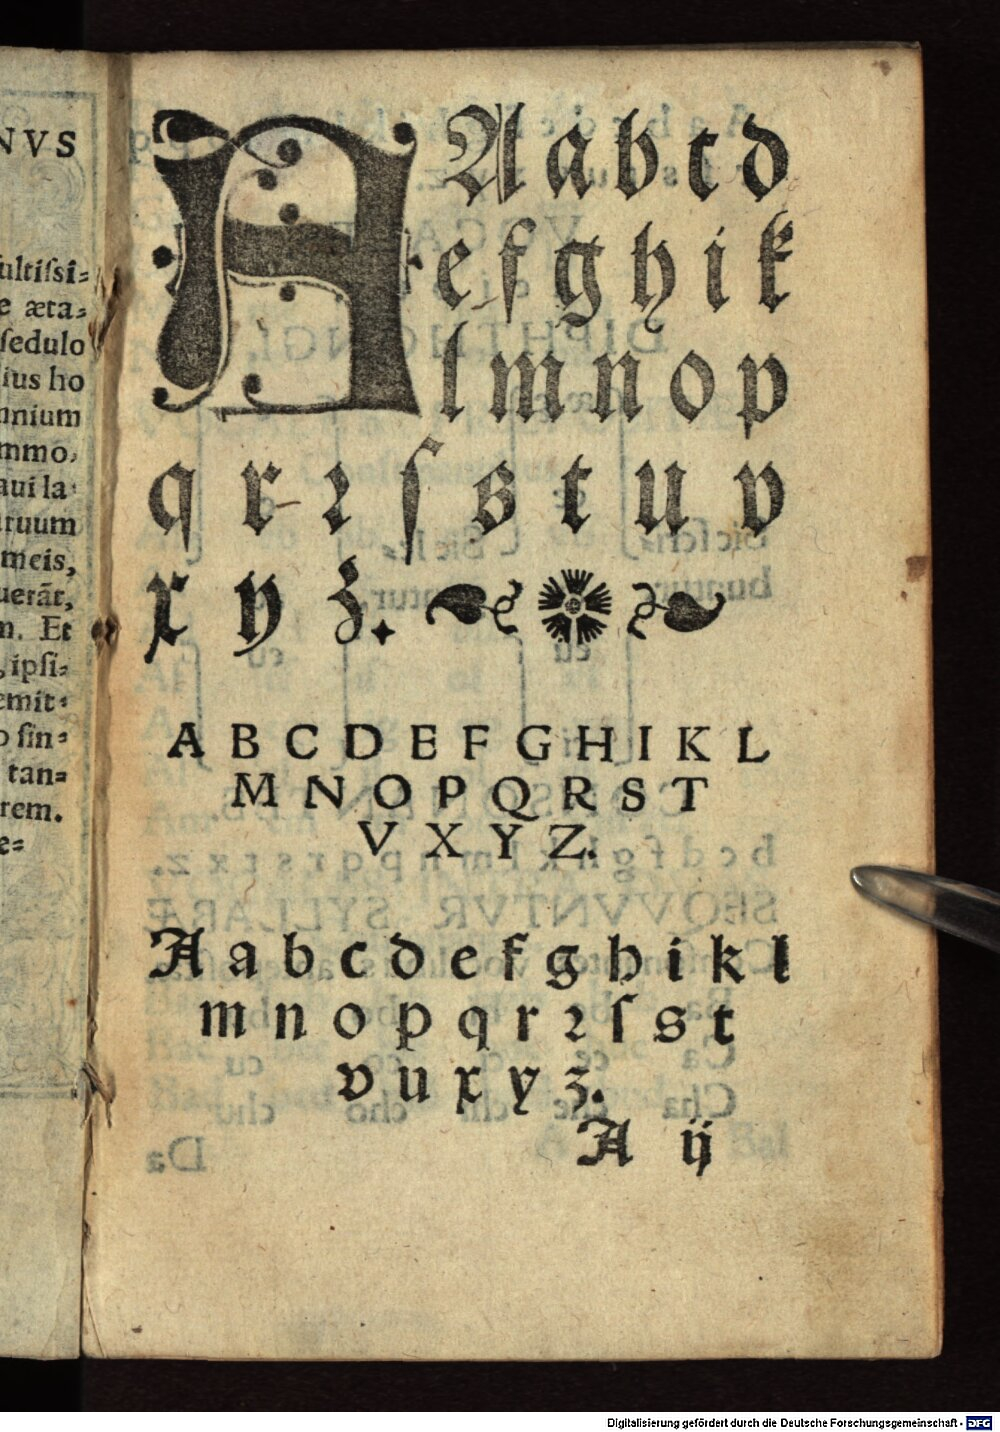 NVS
ultiſsi⸗
e æta⸗
ſedulo
ius ho
nnium
mmo,
aui la⸗
ruum
meis,
uerãt,
n. Et
, ipſi⸗
emit⸗
o ſin⸗
tan⸗
rem.
e⸗
A A a b c d
e f g h i k
l m n o p
q r ꝛ ſ s t u v
x y z. ❧ ☙
A B C D E F G H I K L
M N O P Q R S T
V X Y Z.
A a b c d e f g h i k l
m n o p q r ꝛ ſ s t
v u x y z.
A ij
Da
Digitalisierung gefördert durch die Deutsche Forschungsgemeinschaft - DFG